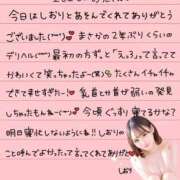 今日はしおりとあそんでくれてありがとう
ございました(^^)♥まさかの2年ぶりくらいの
デリヘル♥最初の方ずっと「えっ?」て言ってて
かわいくて笑っちゃったよー(笑)たくさんイチャイチャ
できて幸せすぎたー♥乳首とか首が弱いの発見
しちゃったもんねー(^^)♥今頃ぐっすり寝てるかな?
明日寝坊しないようにね!!しおりの
こと呼んでよかったって言ってくれてありがと♥
しおり